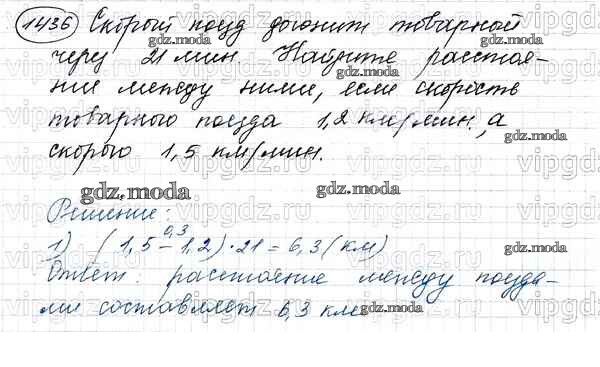 1436 Скорый поезд догонит товарный
через 21 мин. Найдите расстоя-
ние между ними, если скорость
товарного поезда 1,2 км/мин., а
скорого 1,5 км/мин.
gdz.moda
Решение:
0,3
1) (1,5 - 1,2) · 21 = 6,3 (км)
Ответ: расстояние между поезда-
ми составляет 6,3 км.